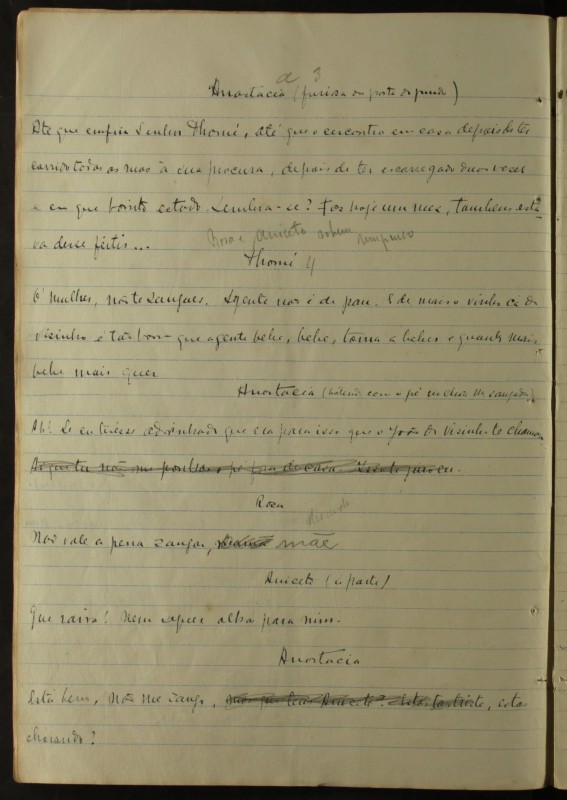 a 3
Anastacia (furiosa da porta do fundo)
Até que emfim Senhor Thomé, até que o encontro em casa depois de ter
corrido todas as ruas à sua procura, depois de ter escorregado duas vezes
e em que bonito estado. Lembra-se? Foz hoje um mez, tambem esta
va desse feitio...
Rosa e Aniceto sobem
Thomé 4
O' mulher, não te zangues. A gente não é de pau. E de mais o vinho cá do
visinho é tão bom que a gente bebe, bebe, torna a beber e quanto mais
bebe mais quer
Anastacia (batendo com o pé no chão zangada)
Ah! Se eu tivesse adivinhado que era para isso que o João do visinho te chamou
não me punhas o pé fora de casa.
Rosa
Não vale a pena zangar, mãe
Aniceto (à parte)
Que raiva! Nem sequer olha para mim.
Anastacia
Está bem, não me zango, que tens Aniceto? Estás tão triste, estás
chorando?